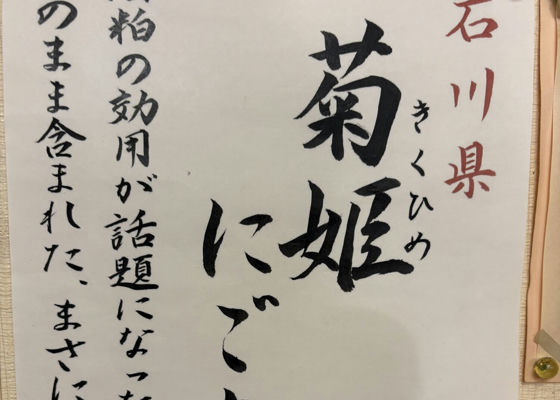 石川県
きくひめ
菊姫
にご
粕の効用が話題になった
のまま含まれた、まさに